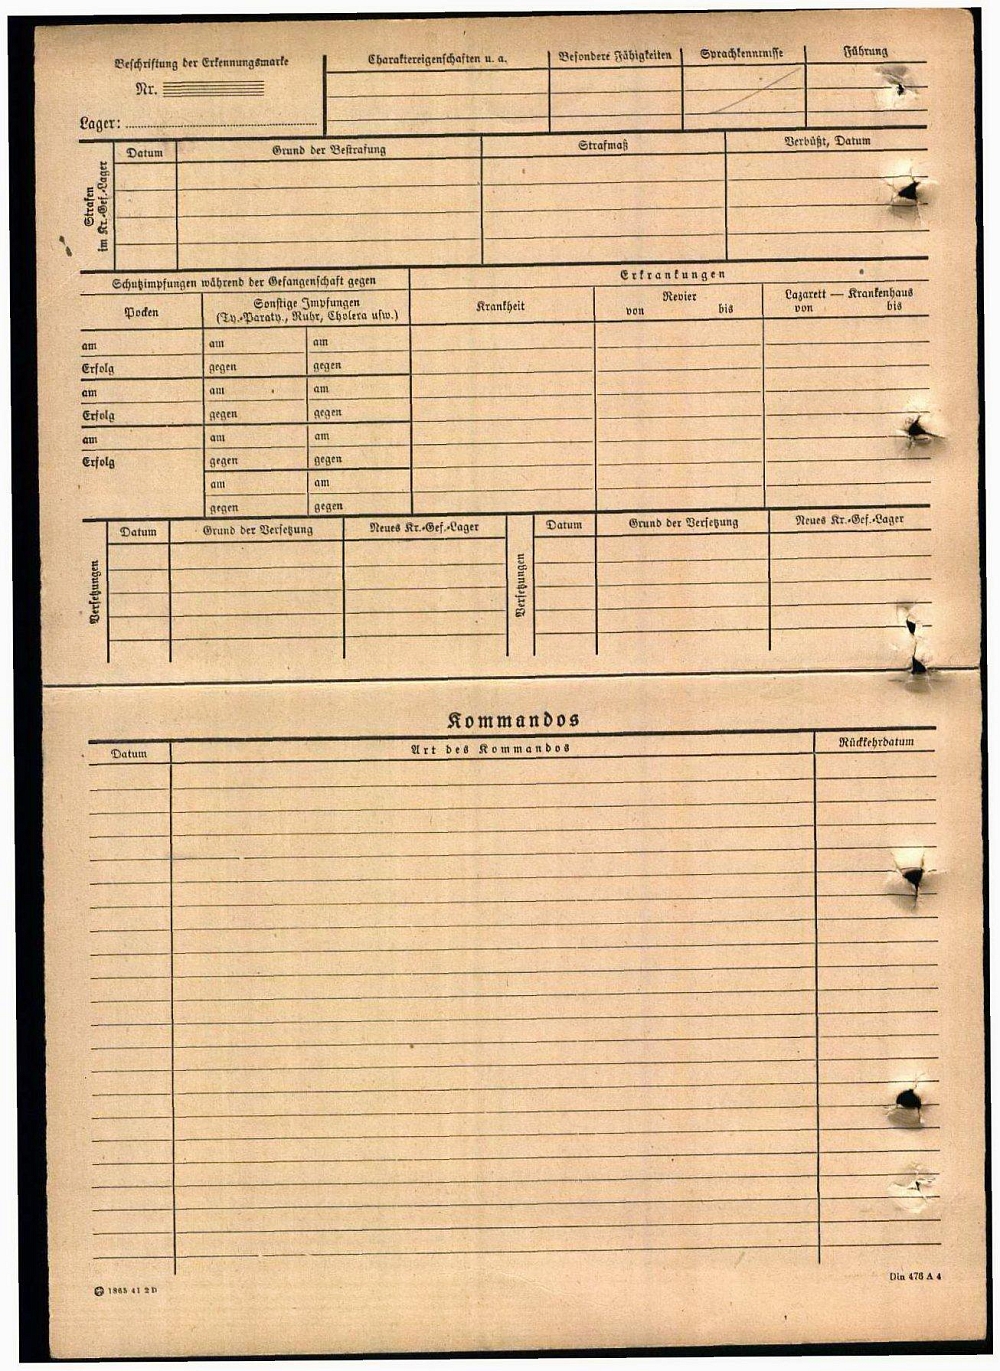 Beschriftung der Erkennungsmarke
Nr.
Lager:
Charaktereigenschaften u. a.
Besondere Fähigkeiten
Sprachkenntnisse
Führung
Strafen
im Kr.-Gef.-Lager
Datum
Grund der Bestrafung
Strafmaß
Verbüßt, Datum
Schutzimpfungen während der Gefangenschaft gegen
Erkrankungen
Pocken
Sonstige Impfungen
(Ty.-Paraty., Ruhr, Cholera usw.)
Krankheit
Revier
von bis
Lazarett — Krankenhaus
von bis
am am am
Erfolg gegen gegen
am am am
Erfolg gegen gegen
am am am
Erfolg gegen gegen
am am
gegen gegen
Versetzungen
Datum
Grund der Versetzung
Neues Kr.-Gef.-Lager
Versetzungen
Datum
Grund der Versetzung
Neues Kr.-Gef.-Lager
Kommandos
Datum
Art des Kommandos
Rückkehrdatum
1865 41 2 D
Din 476 A 4